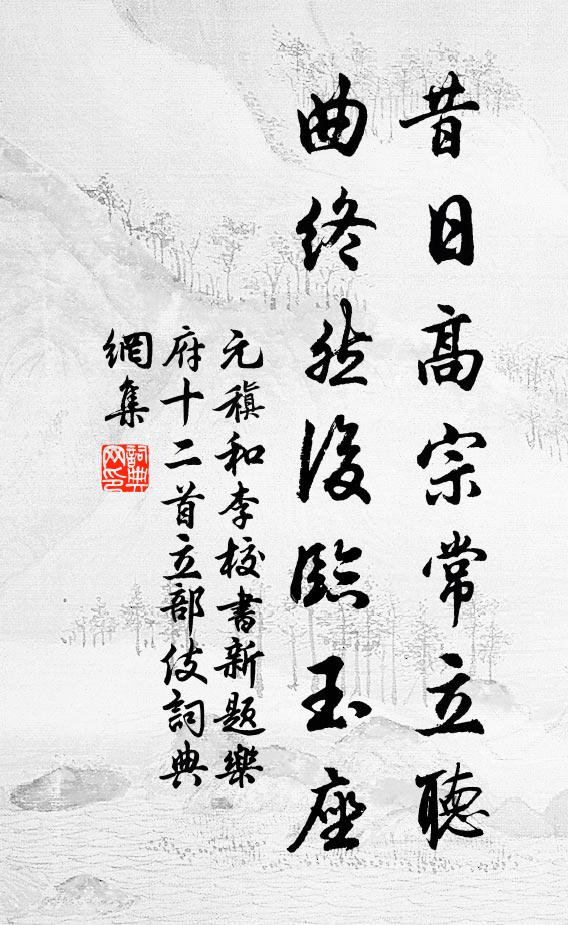 昔日高宗常立聽
曲終然後臨玉座
元稹和李校書新題樂
府十二首立部伎詞典
網集
詞典網印